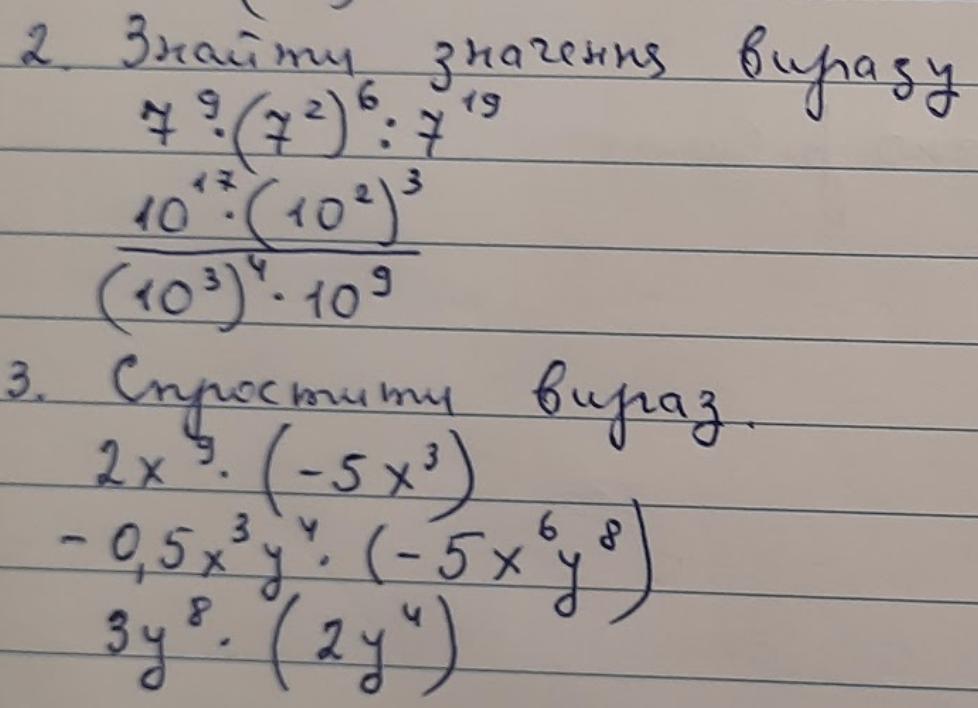 2. Знайти значення виразу
7⁹·(7²)⁶:7¹⁹
10¹⁷·(10²)³
(10³)⁴·10⁹
3. Спростити вираз.
2x⁹·(-5x³)
-0,5x³y⁴·(-5x⁶y⁸)
3y⁸·(2y⁴)